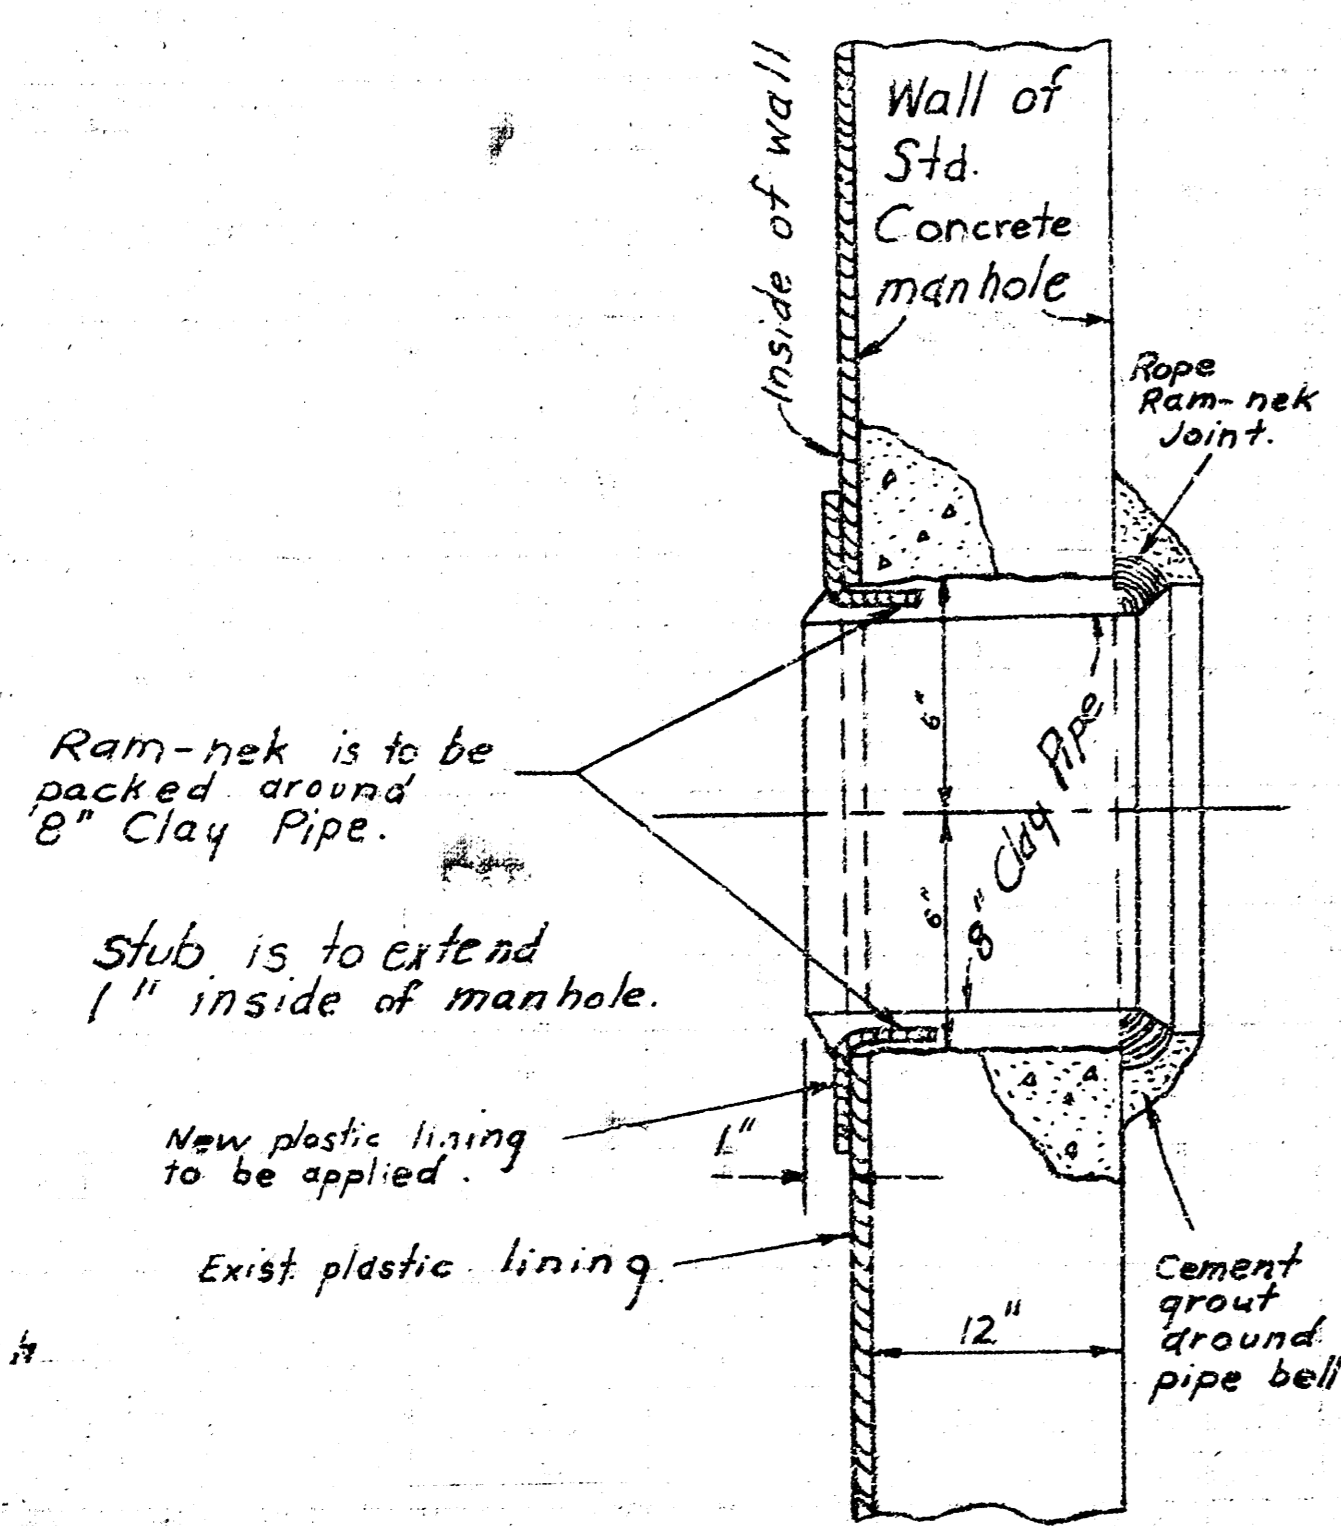 Inside of wall
Wall of
Std.
Concrete
manhole
Rope
Ram-nek
Joint.
6"
8" Clay Pipe
Ram-nek is to be
packed around
8" Clay Pipe.
6"
Stub is to extend
1" inside of manhole.
New plastic lining
to be applied.
1"
Exist. plastic lining
12"
Cement
grout
around
pipe bell